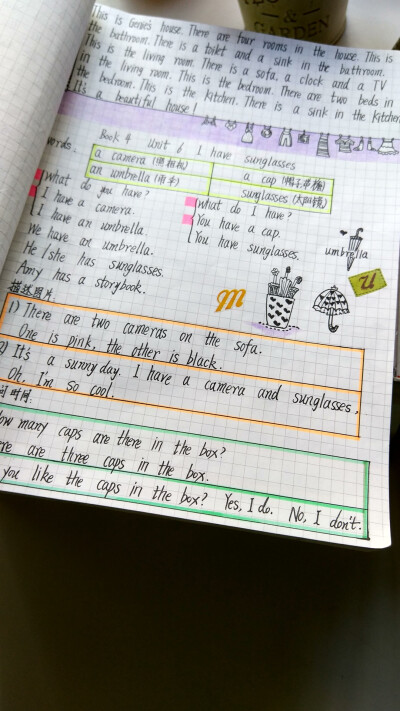 & 
GARDEN
This is Genie's house. There are four rooms in the house. This is
the bathroom. There is a toilet and a sink in the bathroom.
This is the living room. There is a sofa, a clock and a TV
in the living room. This is the bedroom. There are two beds in
the bedroom. This is the kitchen. There is a sink in the kitchen
It's a beautiful house!
Book 4 Unit 6 I have sunglasses
words.
a camera (照相机) a cap (帽子)
an umbrella (雨伞) sunglasses (太阳镜)
What do you have?
I have a camera.
I have an umbrella
We have an umbrella.
He/she has sunglasses.
Amy has a storybook.
What do I have?
You have a cap.
You have sunglasses.
umbrella
m
n
描述图片.
1) There are two cameras on the sofa.
One is pink, the other is black.
2) It's a sunny day. I have a camera and sunglasses,
Oh, I'm so cool.
问时间.
How many caps are there in the box?
There are three caps in the box.
you like the caps in the box? Yes, I do. No, I don't.